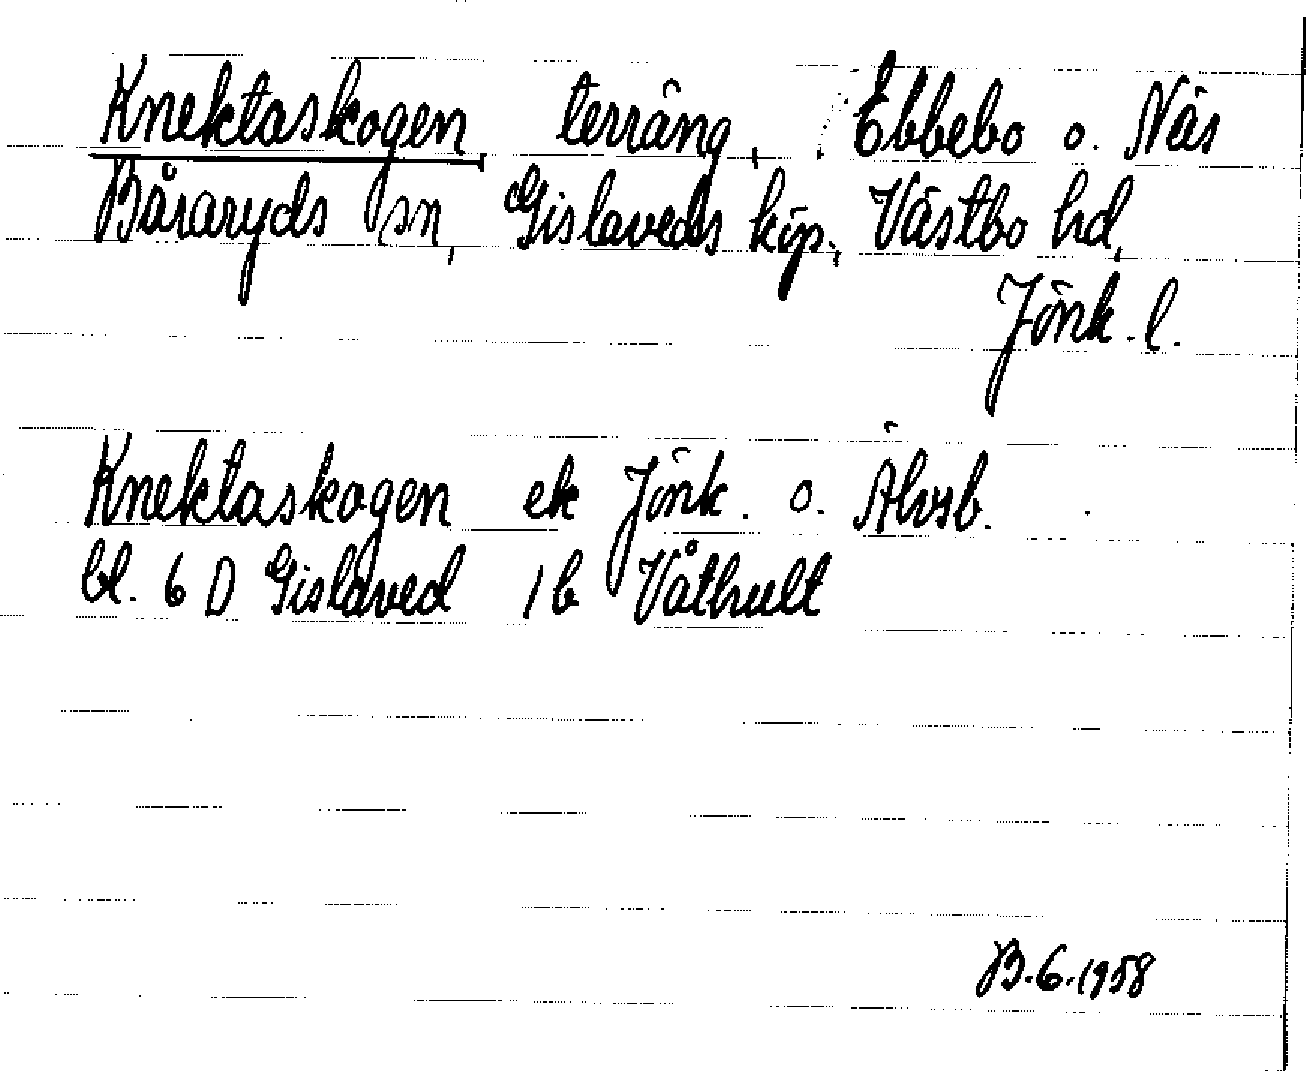 Knektaskogen terräng, Ebbebo o. Näs
Båraryds sn, Gislaveds köp., Västbo hd,
Jönk. l.
Knektaskogen ek Jönk. o. Älvsb.
bl. 6 D Gislaved 1b Våthult
B.6.1958